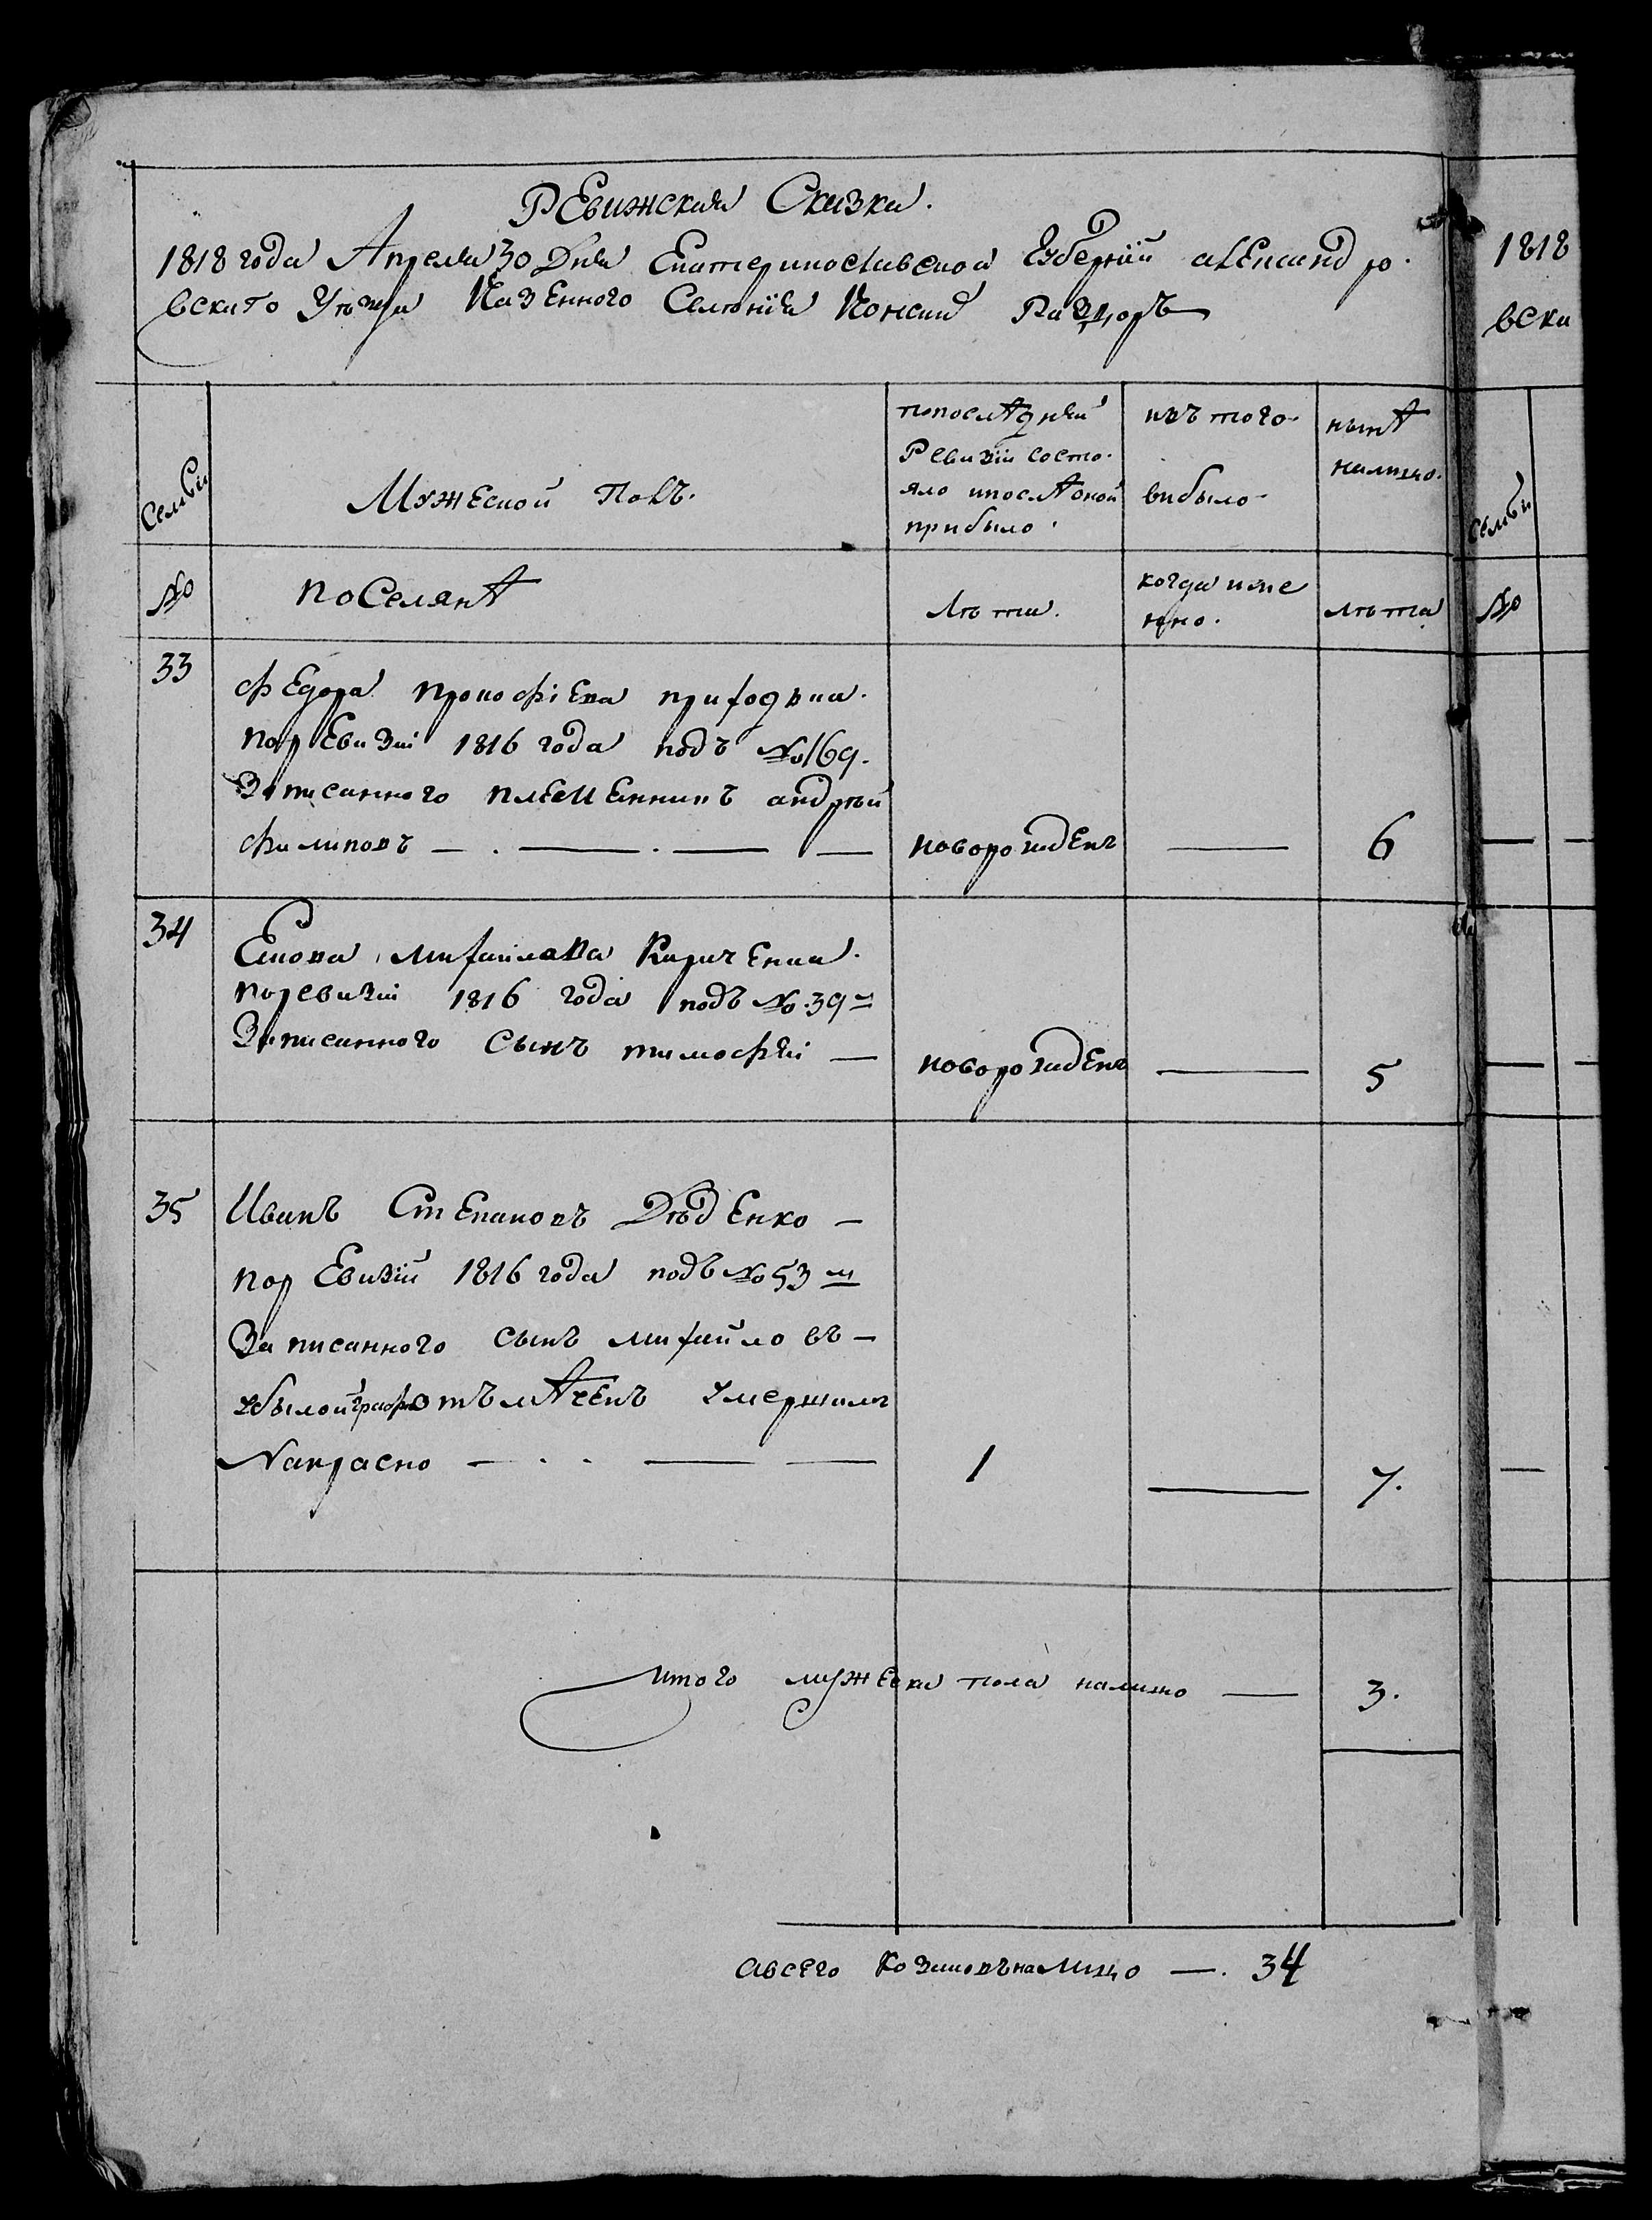 Ревижская Сказка.
1818 года Апреля 30 Дня Екатеринославской Губернiи александ ро.
вскаго Уѣзда Казенного Селенiя Конских Раздоръ
Семьи
Мужеской Полъ.
попослѣдней
Ревизiи состо.
яло ипослѣ оной
прибыло.
изъ того
выбыло
нынѣ
налицо.
№
поселянѣ
лѣта.
когда имѣ
нно.
лѣта
33
Федора прокофiева приходька.
поревизiи 1816 года подъ №169.
Записанного племенникъ андрей
филиповъ
новорожденъ
6
34
михайлова Кириченка.
поревизiи 1816 года подъ №.39м
Записанного сынъ тимофей
новорожденъ
5
35
Иванъ Степановъ Дѣденко
поревизiи 1816 года подъ №53м
Записанного сынъ михайло въ
убылой графѣ отмѣченъ умершимъ
Напрасно
1
7.
итого мужеска пола налицо
3.
авсего Козаковъ налицо 34
1818
вска
Семьи
№